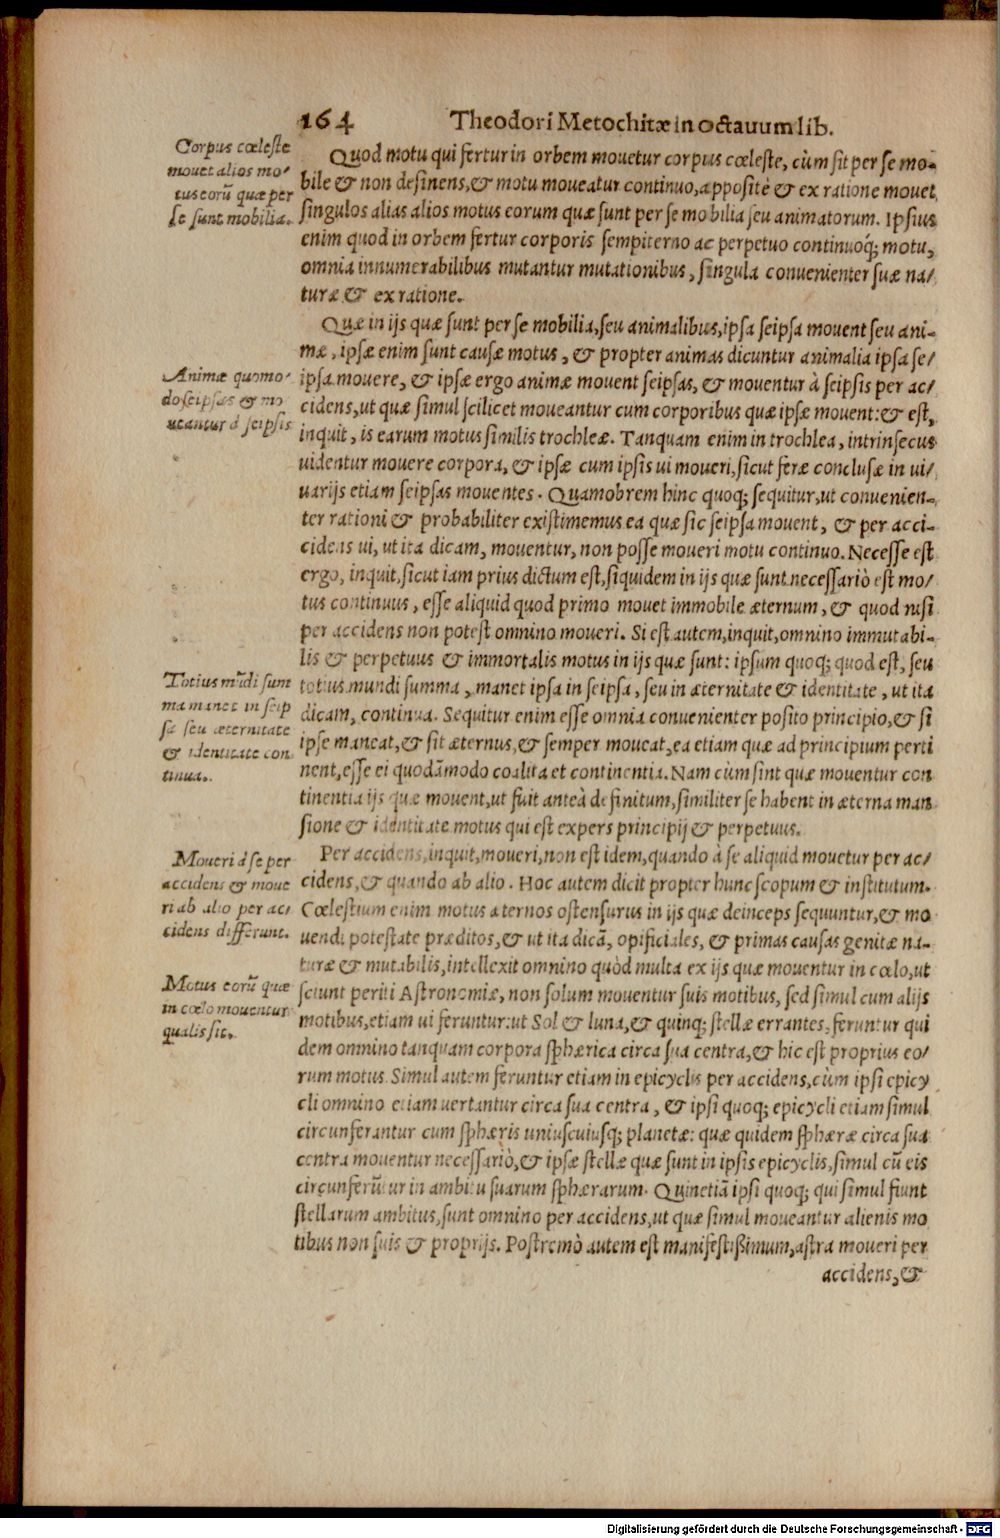 164 Theodori Metochitæ in octauum lib.
Corpus cœleste
mouet alios mo-
tus eorū quæ per
se sunt mobilia.
Quod motu qui fertur in orbem mouetur corpus cœleste, cùm sit per se mo-
bile & non desinens, & motu moueatur continuo, appositè & ex ratione mouet
singulos alias alios motus eorum quæ sunt per se mobilia seu animatorum. Ipsius
enim quod in orbem fertur corporis sempiterno ac perpetuo continuoq́; motu,
omnia innumerabilibus mutantur mutationibus, singula conuenienter suæ na-
turæ & ex ratione.
Quæ in ijs quæ sunt per se mobilia, seu animalibus, ipsa seipsa mouent seu ani-
mæ, ipsæ enim sunt causæ motus, & propter animas dicuntur animalia ipsa se-
Animæ quomo-
do seipsas & mo
ueantur à seipsis
ipsa mouere, & ipsæ ergo animæ mouent seipsas, & mouentur à seipsis per ac-
cidens, ut quæ simul scilicet moueantur cum corporibus quæ ipsæ mouent: & est,
inquit, is earum motus similis trochleæ. Tanquam enim in trochlea, intrinsecus
uidentur mouere corpora, & ipsæ cum ipsis ui moueri, sicut feræ conclusæ in ui-
uarijs etiam seipsas mouentes. Quamobrem hinc quoq; sequitur, ut conuenien-
ter rationi & probabiliter existimemus ea quæ sic seipsa mouent, & per acci-
cidens ui, ut ita dicam, mouentur, non posse moueri motu continuo. Necesse est
ergo, inquit, sicut iam prius dictum est, siquidem in ijs quæ sunt necessariò est mo-
tus continuus, esse aliquid quod primo mouet immobile æternum, & quod nisi
per accidens non potest omnino moueri. Si est autem, inquit, omnino immutabi-
lis & perpetuus & immortalis motus in ijs quæ sunt: ipsum quoq; quod est, seu
Totius mūdi sum
ma manet in seip
sa seu æternitate
& identitate con
tinua.
totius mundi summa, manet ipsa in seipsa, seu in æternitate & identitate, ut ita
dicam, continua. Sequitur enim esse omnia conuenienter posito principio, & si
ipse maneat, & sit æternus, & semper moueat, ea etiam quæ ad principium perti
nent, esse ei quodāmodo coalita et continentia. Nam cùm sint quæ mouentur con
tinentia ijs quæ mouent, ut fuit anteà definitum, similiter se habent in æterna man
sione & identitate motus qui est expers principij & perpetuus.
Moueri à se per
accidens & moue
ri ab alio per ac-
cidens differunt.
Per accidens, inquit, moueri, non est idem, quando à se aliquid mouetur per ac-
cidens, & quando ab alio. Hoc autem dicit propter hunc scopum & institutum.
Cœlestium enim motus æternos ostensurus in ijs quæ deinceps sequuntur, & mo
uendi potestate præditos, & ut ita dicā, opificiales, & primas causas genitæ na-
turæ & mutabilis, intellexit omnino quòd multa ex ijs quæ mouentur in cœlo, ut
Motus eorū quæ
in cœlo mouentur
qualis sit.
sciunt periti Astronomiæ, non solum mouentur suis motibus, sed simul cum alijs
motibus, etiam ui feruntur: ut Sol & luna, & quinq; stellæ errantes, feruntur qui
dem omnino tanquam corpora sphærica circa sua centra, & hic est proprius eo-
rum motus. Simul autem feruntur etiam in epicyclis per accidens, cùm ipsi epicy
cli omnino etiam uertantur circa sua centra, & ipsi quoq; epicycli etiam simul
circunferantur cum sphæris uniuscuiusq; planetæ: quæ quidem sphæræ circa sua
centra mouentur necessariò, & ipsæ stellæ quæ sunt in ipsis epicyclis, simul cū eis
circunferūtur in ambitu suarum sphærarum. Quinetiā ipsi quoq; qui simul fiunt
stellarum ambitus, sunt omnino per accidens, ut quæ simul moueantur alienis mo
tibus non suis & proprijs. Postremò autem est manifestißimum, astra moueri per
accidens, &
Digitalisierung gefördert durch die Deutsche Forschungsgemeinschaft - DFG